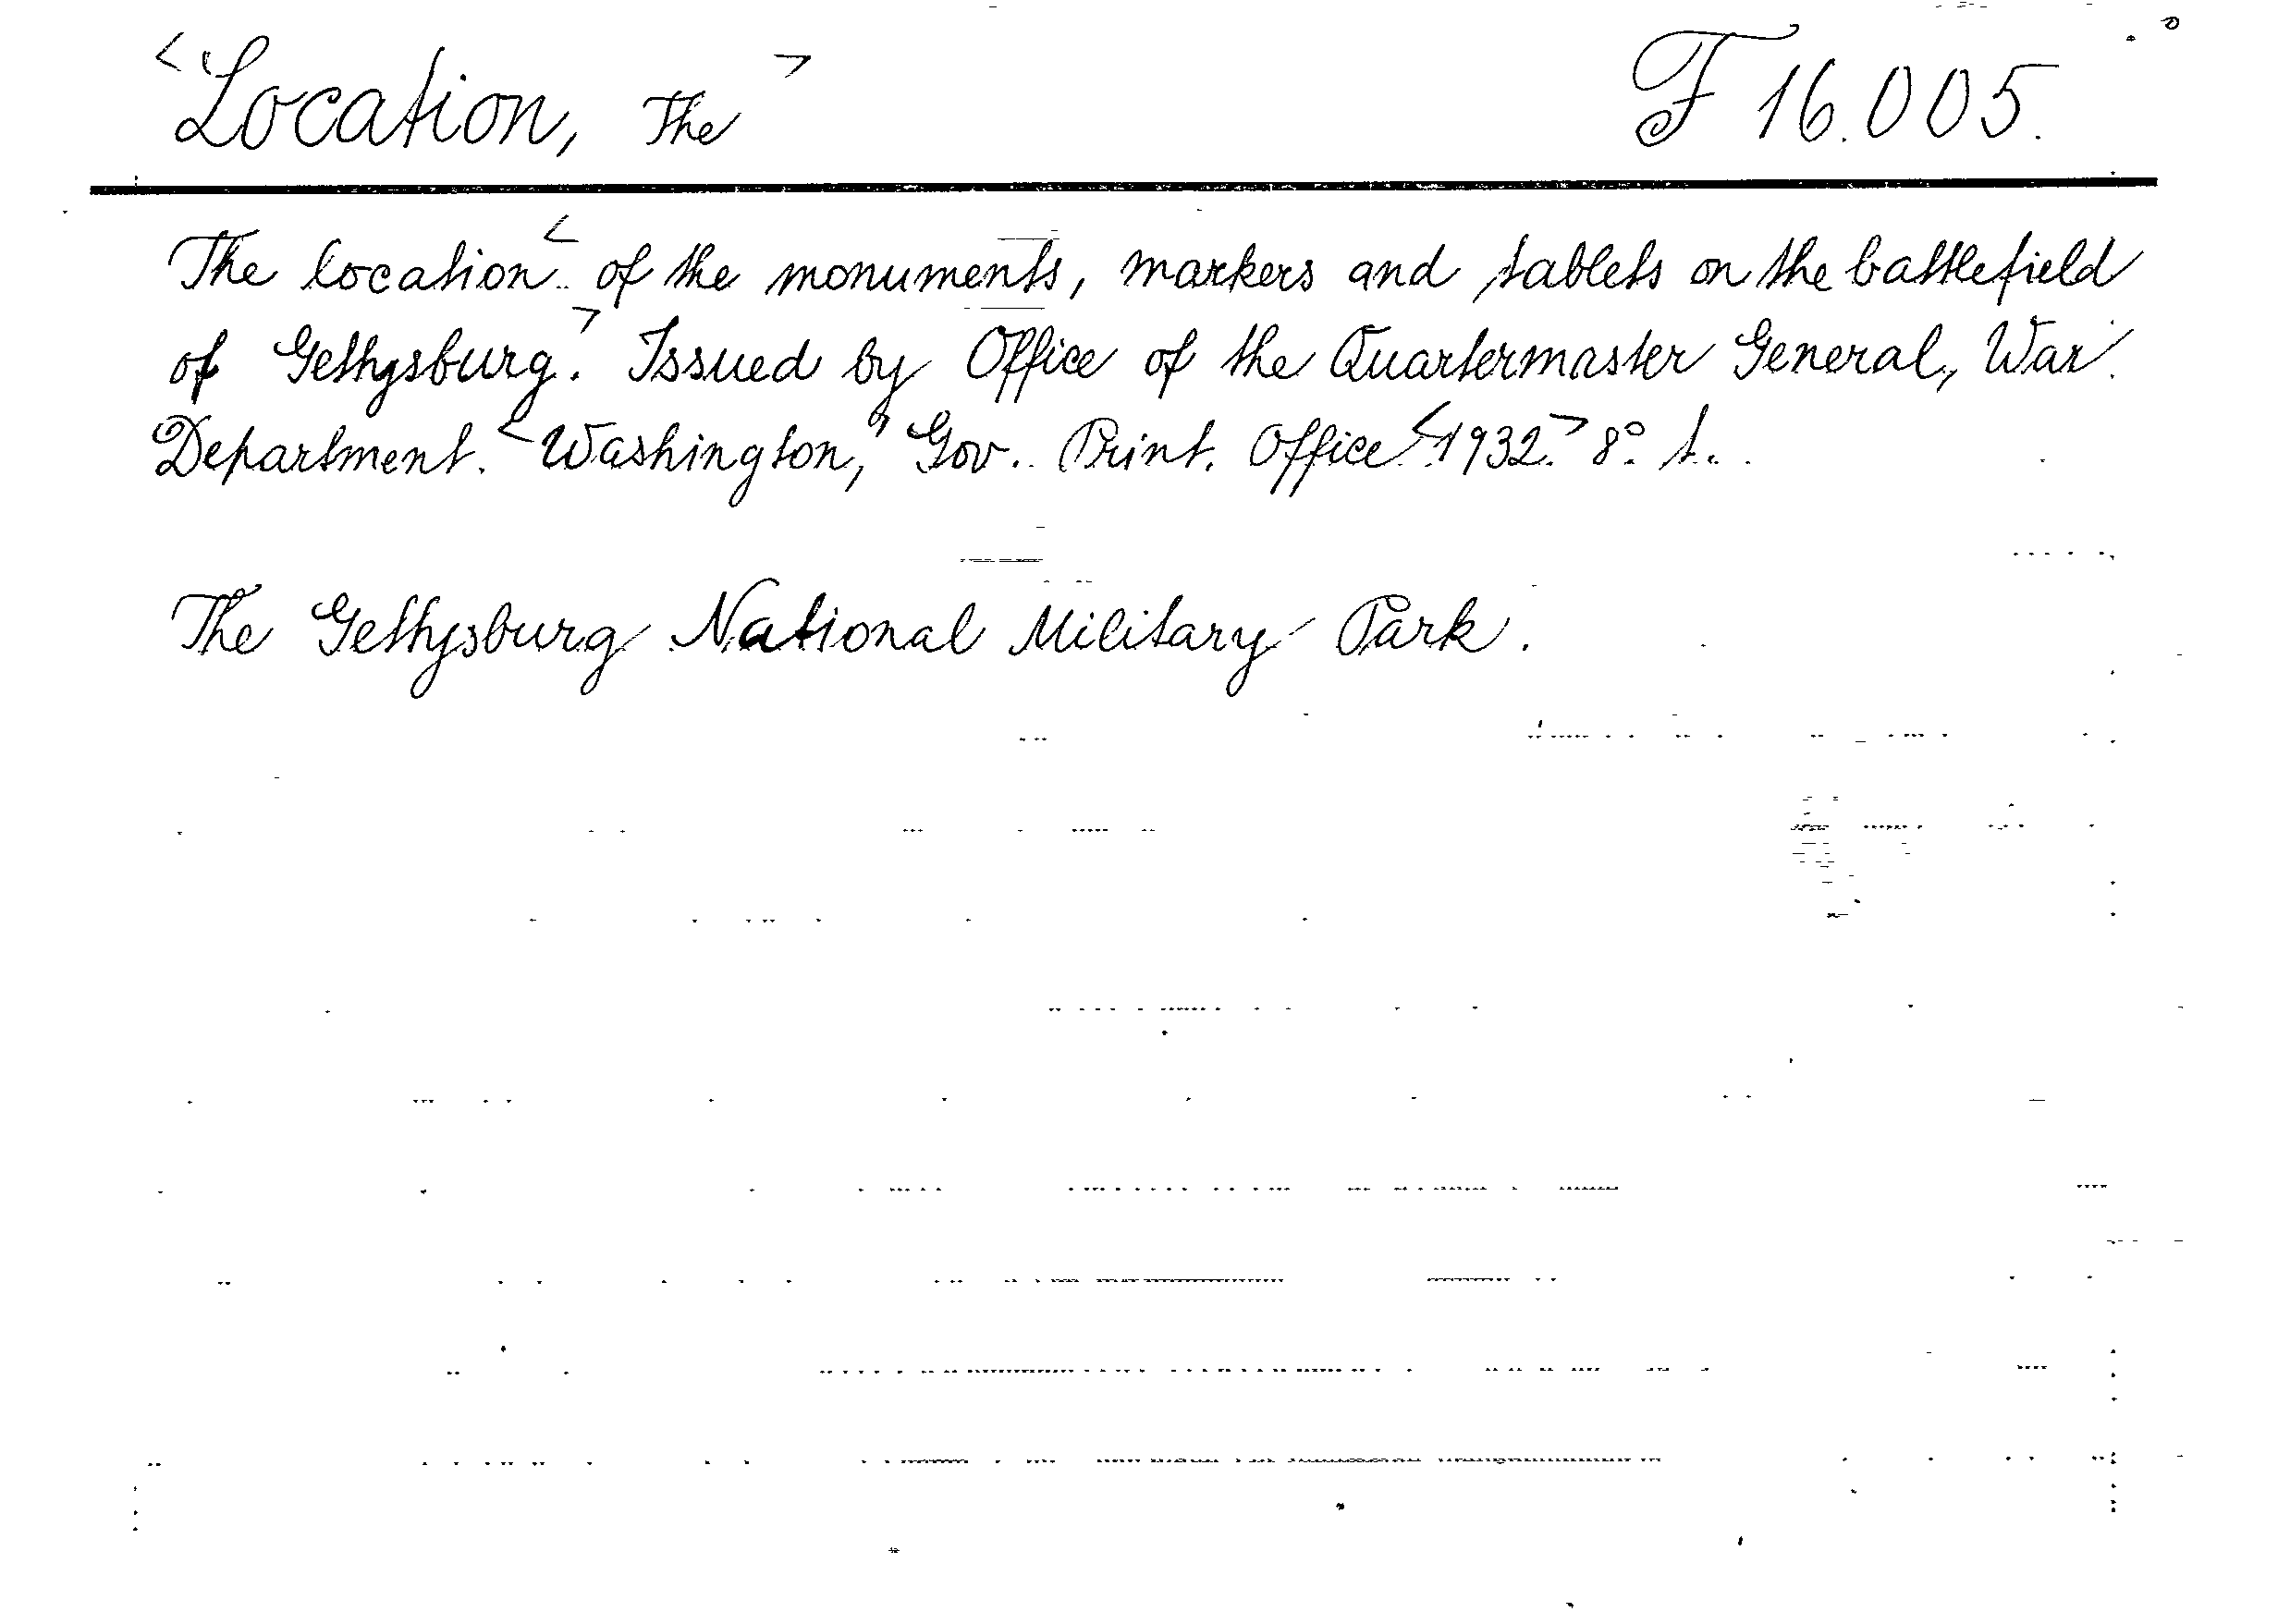 <Location, The> F 16.005.
The location < of the monuments, markers and tablets on the battlefield
of Gettysburg.> Issued by Office of the Quartermaster General, War
Department. <Washington,> Gov. Print. Office <1932.> 8° t..
The Gettysburg National Military Park.